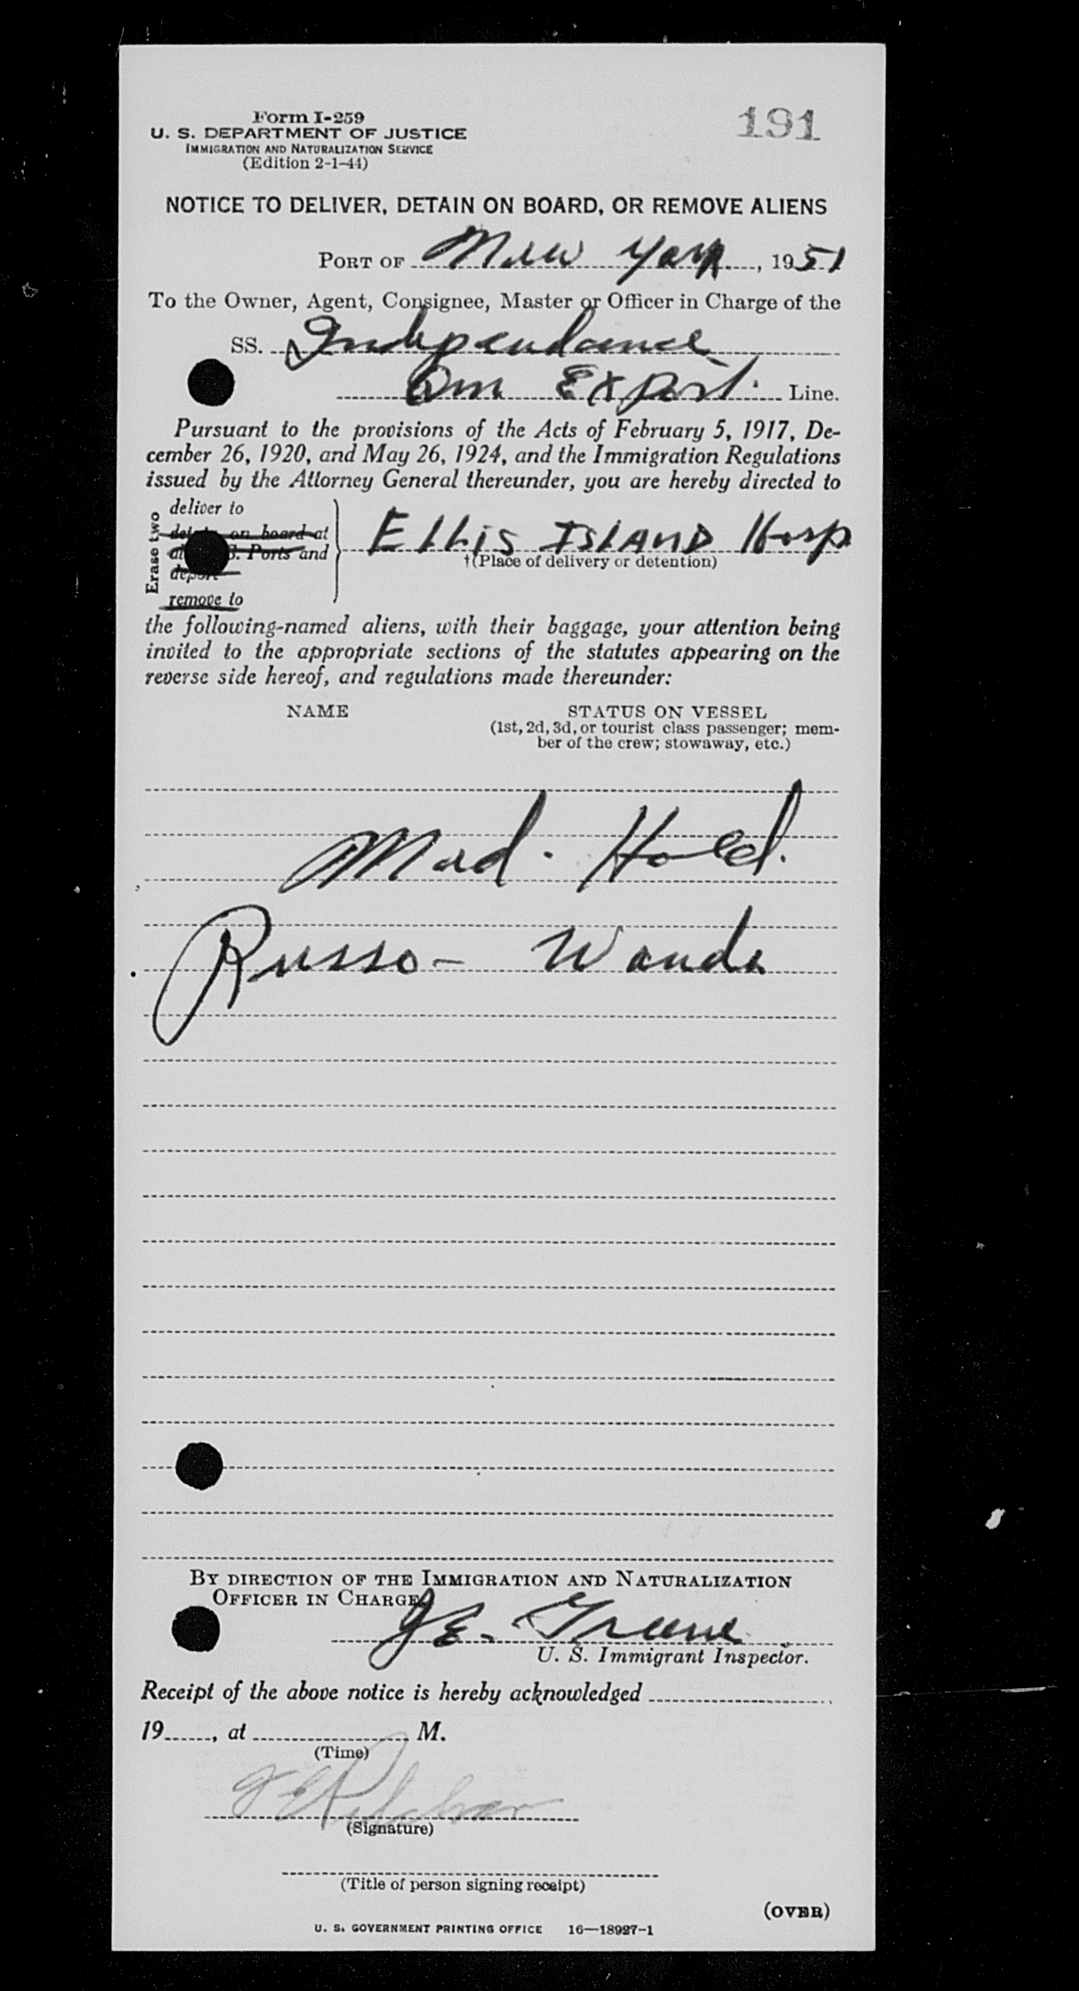 Form I-259
191
U. S. DEPARTMENT OF JUSTICE
IMMIGRATION AND NATURALIZATION SERVICE
(Edition 2-1-44)
NOTICE TO DELIVER, DETAIN ON BOARD, OR REMOVE ALIENS
PORT OF New York, 1951
To the Owner, Agent, Consignee, Master or Officer in Charge of the
SS. Independance
Am Export Line.
Pursuant to the provisions of the Acts of February 5, 1917, De-
cember 26, 1920, and May 26, 1924, and the Immigration Regulations
issued by the Attorney General thereunder, you are hereby directed to
Erase two
deliver to
on board at
Ports and
deport
remove to
Ellis Island Hosp
†(Place of delivery or detention)
the following-named aliens, with their baggage, your attention being
invited to the appropriate sections of the statutes appearing on the
reverse side hereof, and regulations made thereunder:
NAME STATUS ON VESSEL
(1st, 2d, 3d, or tourist class passenger; mem-
ber of the crew; stowaway, etc.)
Med. Hold.
Russo - Wanda
BY DIRECTION OF THE IMMIGRATION AND NATURALIZATION
OFFICER IN CHARGE
J E. Greene
U. S. Immigrant Inspector.
Receipt of the above notice is hereby acknowledged
19, at M.
(Time)
(Signature)
(Title of person signing receipt)
(OVER)
U. S. GOVERNMENT PRINTING OFFICE 16—18927-1